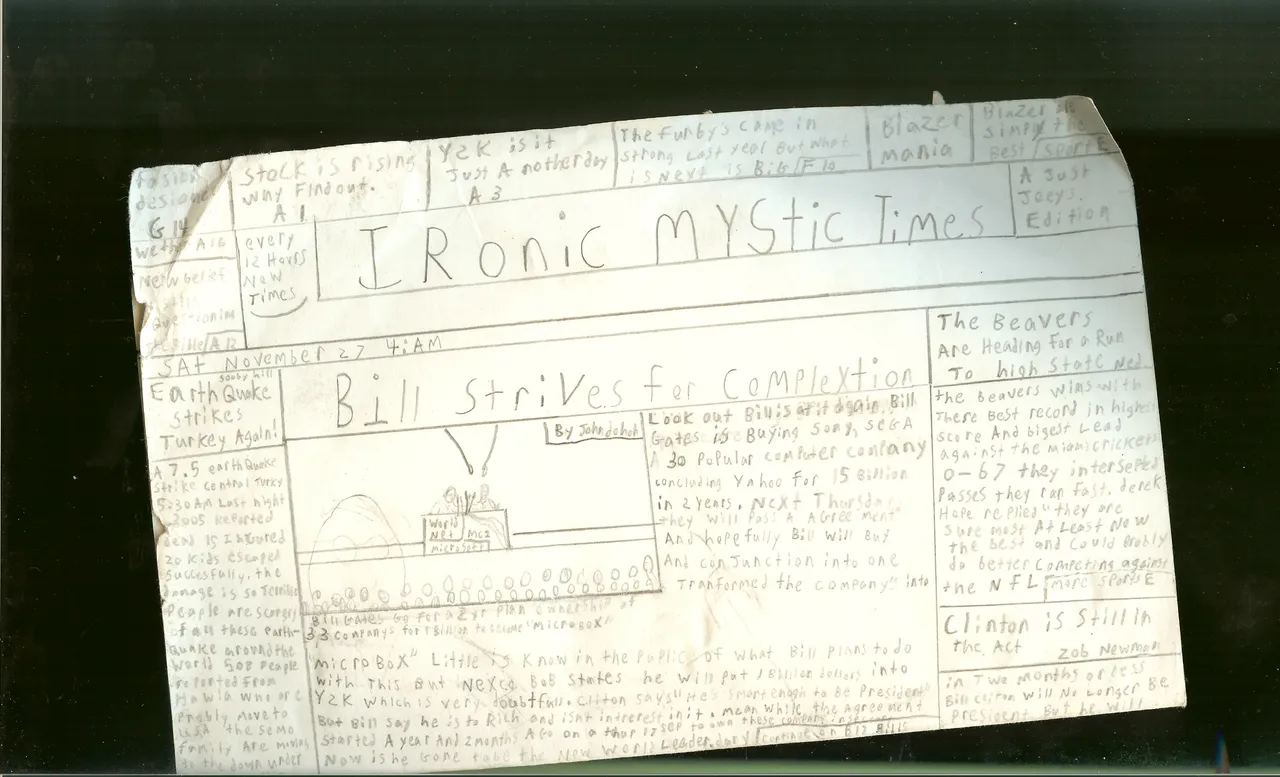 designe
G 14
A16
Stock is rising
why Find out.
A 1
Y2K is it
Just A nother day
A 3
The Furby's came in
strong Last year But what
is Next is BiG F 10
Blazer
mania
Blazer
simply the
Best Sport E
A Just
Joeys.
Edition
New belief
A 12
every
12 Hours
New
Times
IRonic MYStic Times
SAt November 27 4:AM
Earth Quake
strikes
Turkey Again!
A 7.5 earth Quake
strike central Turky
5:30 AM Last night
2005 Reported
dead 15 Injured
20 kids escaped
succesfully. the
damage is so Terrible
People are
of all these earth-
Quake around the
world 500 People
reported From
who are
move to
USA the
family Are moving
to the down under
Bill Strives for Complextion
By John
World
Net MC2
microsoft
Look out Bill is at it again. Bill
Gates is Buying Sony, SEGA
A 30 Popular computer company
concluding Yahoo for 15 Billion
in 2 years. Next Thursday
"they will Pass A Agreement"
And hopefully Bill will Buy
And conJunction into one
Tranformed the company" into
Bill Gates Go For a 2 yr Plan ownership of
33 companys for 1 Billion to become "MicroBox"
"micro BoX" Little is Know in the Puplic of what Bill Plans to do
with This But States he will Put 1 Billion dollars into
Y2K which is very doubtfull. Cliton says "He's smart enogh to be President"
But Bill say he is to Rich and isnt interest in it. mean while the Agreement
Started A year And 2 months Ago on a thur 17 SEP to own these company
Now is he Gone to be the New World Leader. continue on B12 Bills
The Beavers
Are Heading for a Run
To high State Ned
the Beavers wins with
There Best record in highest
score And bigest Lead
against the miami crickets
0-67 they intersepted
Passes they ran fast. derek
Hope replied "they are
Sure most At Least Now
the best and could Probly
do better competing against
the NFL more sports E
Clinton is Still in
the Act Zob Newman
in Two months or Less
Bill Will No Longer Be
President But he will